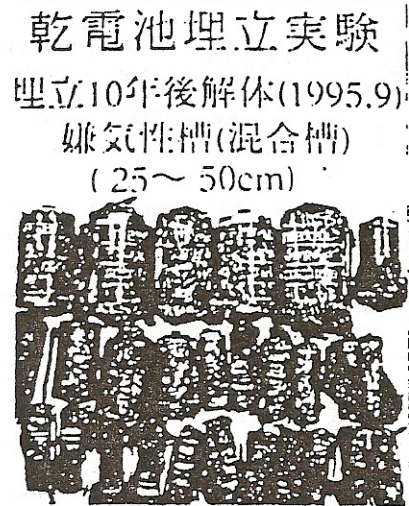 乾電池埋立実験
埋立10年後解体(1995.9)
嫌気性槽(混合槽)
(25〜50cm)